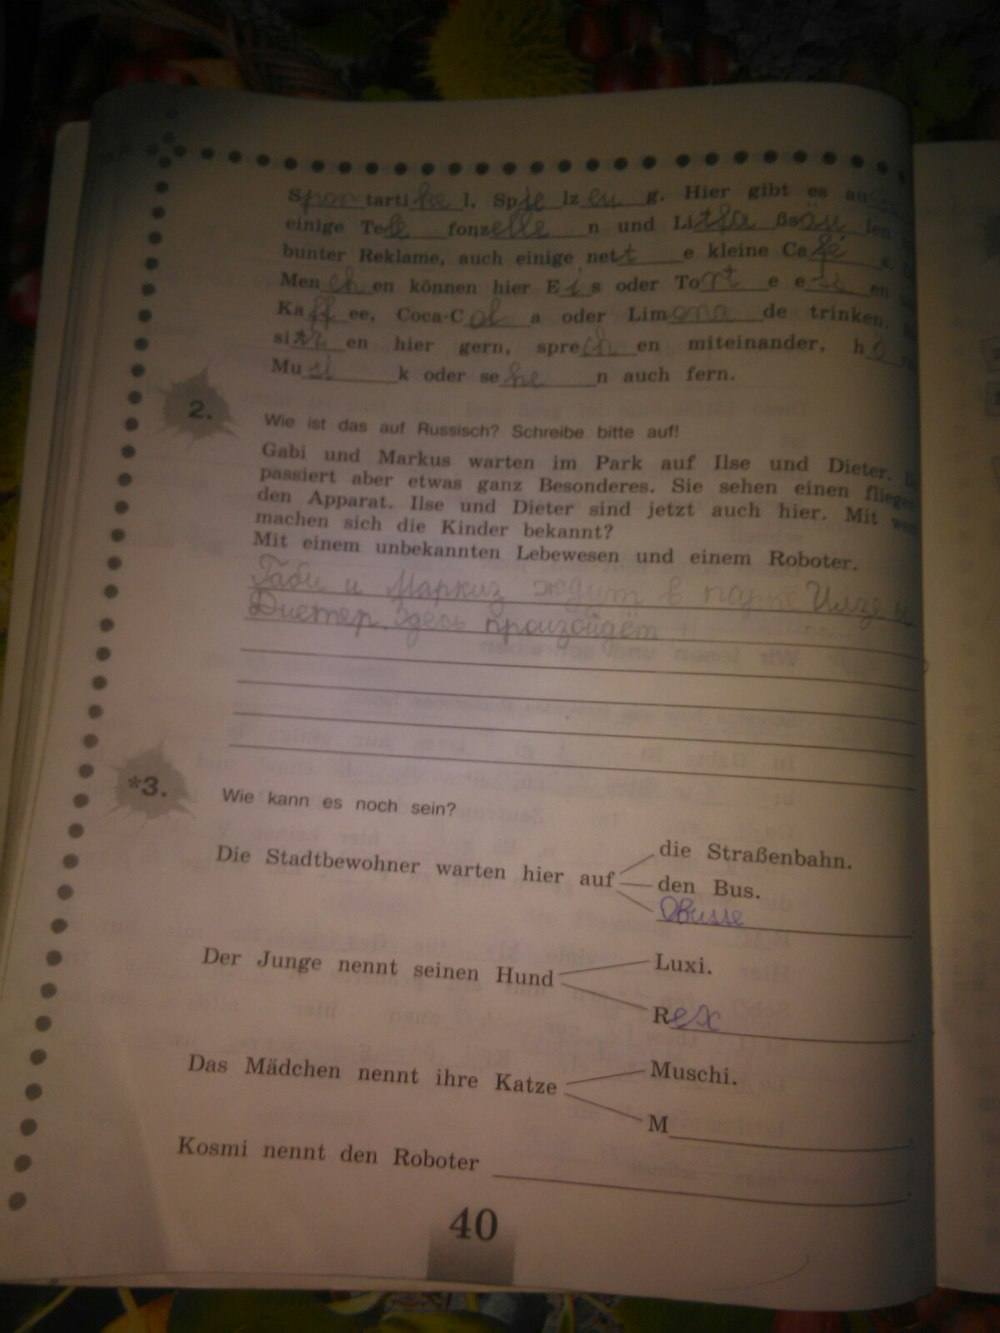 Sporttartikel, Spielzeug. Hier gibt es
einige Telefonzellen und Litfaßsäulen
bunter Reklame, auch einige nette kleine Cafés.
Menchen können hier Eis oder Torte
Kaffee, Coca-Cola oder Limonade trinken.
sitzen hier gern, sprechen miteinander,
Musik oder sehen auch fern.
2. Wie ist das auf Russisch? Schreibe bitte auf!
Gabi und Markus warten im Park auf Ilse und Dieter.
passiert aber etwas ganz Besonderes. Sie sehen einen
den Apparat. Ilse und Dieter sind jetzt auch hier. Mit
machen sich die Kinder bekannt?
Mit einem unbekannten Lebewesen und einem Roboter.
Габи и Маркиз ждут в парке Илзе и
Диетер. Здесь произойдёт
*3. Wie kann es noch sein?
Die Stadtbewohner warten hier auf
die Straßenbahn.
den Bus.
Der Junge nennt seinen Hund
Luxi.
Rex
Das Mädchen nennt ihre Katze
Muschi.
M
Kosmi nennt den Roboter
40